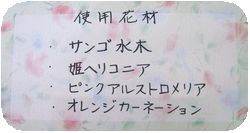 使用花材
・サンゴ水木
・姫ヘリコニア
・ピンクアルストロメリア
・オレンジカーネーション